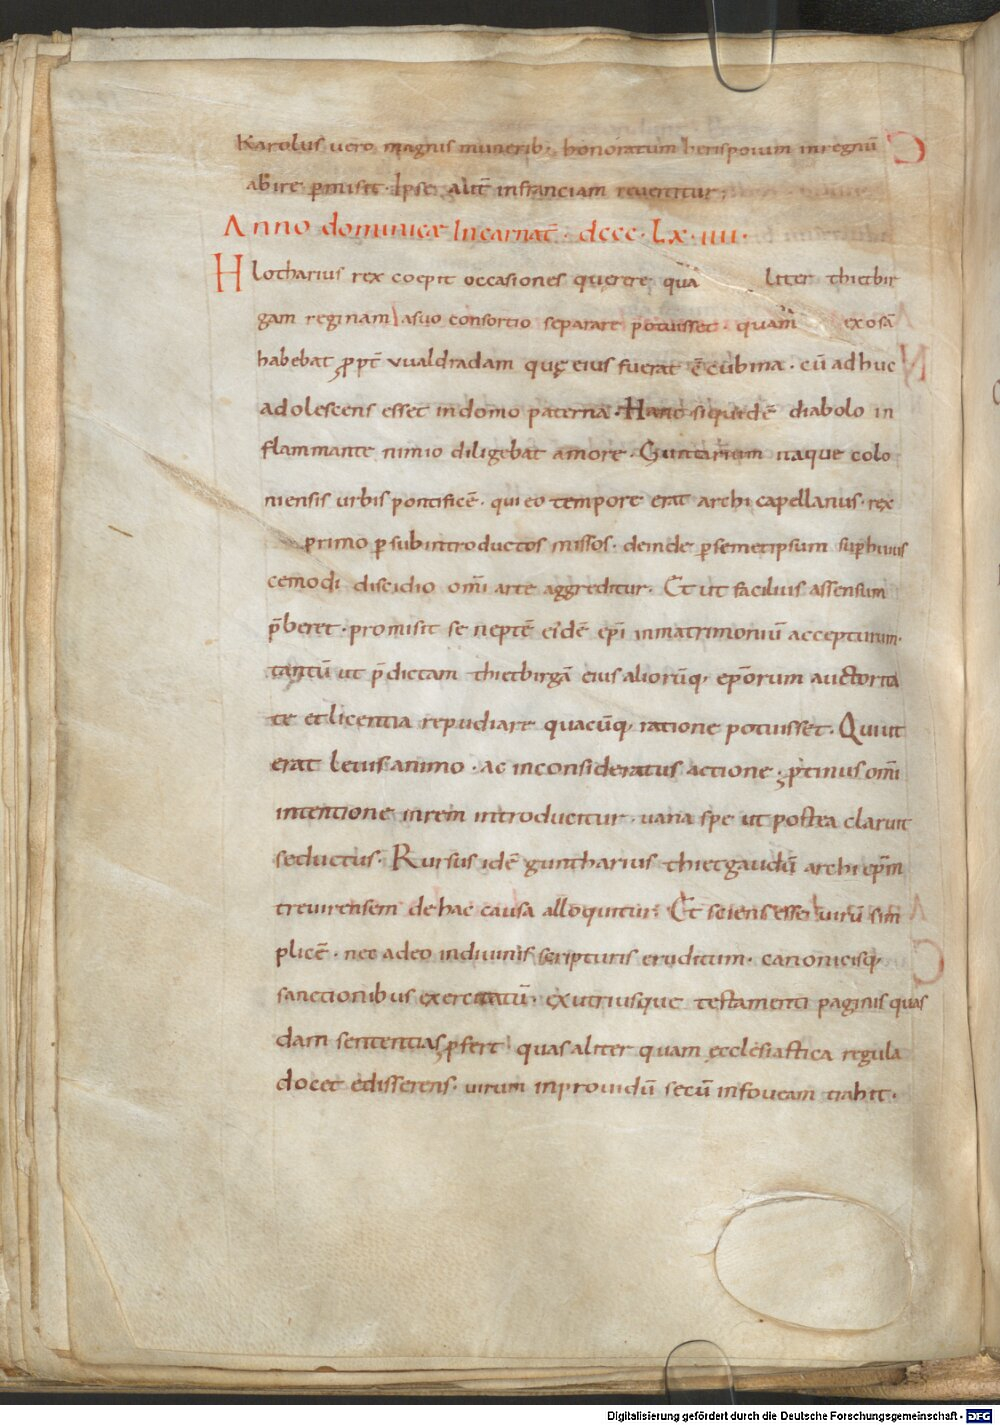 Karolus vero magnis munerib; honoratum herispoium in regnū
abire p̄misit. Ipse aut̄ infranciam revertitur;
Anno dominicæ Incarnat̄. dccc. Lx. iiii.
Hlotharius rex coepit occasiones querere qua liter thietbir
gam reginam asuo consortio separare potuisset. quam exosā
habebat ꝓpt̄ vualdradam quę eius fuerat c̄cubina. cū adhuc
adolescens esset indomo paterna. Hanc siquidē diabolo in
flammante nimio diligebat amore. Guntarium itaque colo
niensis urbis pontificē. qui eo tempore erat archicapellanus. rex
primo p̱ subintroductos missos. deinde p̱ semetipsum sup̱ huius
cemodi discidio om̄i arte aggreditur. Et ut facilius assensum
p̄beret. promisit se neptē eidē ep̄i inmatrimoniū accepturum.
tantū ut p̄dictam thietbirgā eius aliorūq; ep̄orum auctorita
te et licentia repudiare quacūq; ratione potuisset. Qui ut
erat letus animo. ac inconsideratus actione. ꝓtinus om̄i
intentione inrem introducitur. vana spe ut postea claruit
seductus. Rursus idē guntharius thietgaudū archiep̄m
trevirensem dehac causa alloquitur. Et sciens esse virū sim
plicē. nec adeo indivinis scripturis eruditum. canonicisq;
sanctionibus exercitatū. exutriusque testamenti paginis quas
dam sententias ꝓfert quas aliter quam ęcclesiastica regula
docet edisserens. virum inprovidū secū infoveam trahit.
Digitalisierung gefördert durch die Deutsche Forschungsgemeinschaft - DFG